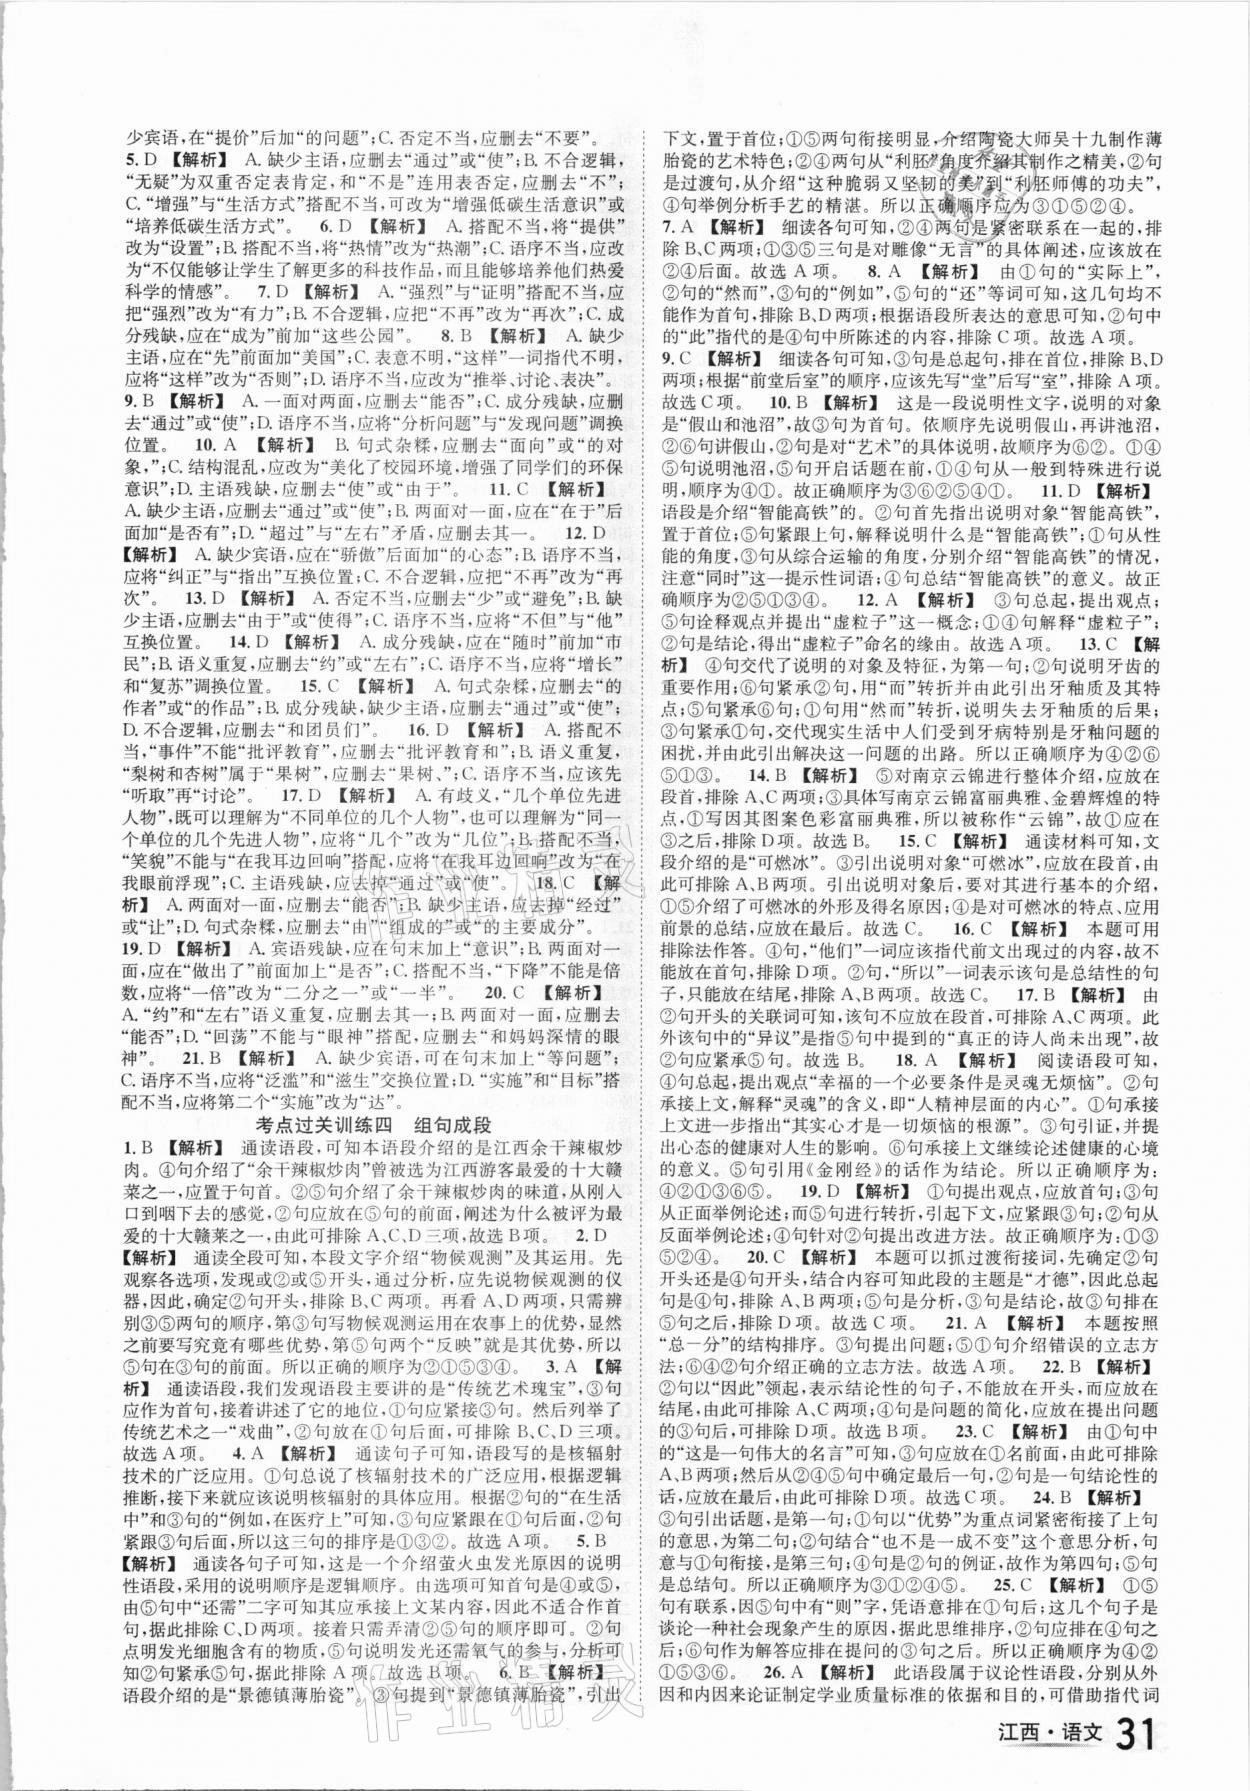 少宾语,在“提价”后加“的问题”;C. 否定不当,应删去“不要”。
5. D 【解析】 A. 缺少主语,应删去“通过”或“使”;B. 不合逻辑,
“无疑”为双重否定表肯定,和“不是”连用表否定,应删去“不”;
C. “增强”与“生活方式”搭配不当,可改为“增强低碳生活意识”或
“培养低碳生活方式”。 6. D 【解析】 A. 搭配不当,将“提供”
改为“设置”;B. 搭配不当,将“热情”改为“热潮”;C. 语序不当,应改
为“不仅能够让学生了解更多的科技作品,而且能够培养他们热爱
科学的情感”。 7. D 【解析】 A. “强烈”与“证明”搭配不当,应
把“强烈”改为“有力”;B. 不合逻辑,应把“不再”改为“再次”;C. 成
分残缺,应在“成为”前加“这些公园”。 8. B 【解析】 A. 缺少
主语,应在“先”前面加“美国”;C. 表意不明,“这样”一词指代不明,
应将“这样”改为“否则”;D. 语序不当,应改为“推举、讨论、表决”。
9. B 【解析】 A. 一面对两面,应删去“能否”;C. 成分残缺,应删去
“通过”或“使”;D. 语序不当,应将“分析问题”与“发现问题”调换
位置。 10. A 【解析】 B. 句式杂糅,应删去“面向”或“的对
象,”;C. 结构混乱,应改为“美化了校园环境,增强了同学们的环保
意识”;D. 主语残缺,应删去“使”或“由于”。 11. C 【解析】
A. 缺少主语,应删去“通过”或“使”;B. 两面对一面,应在“在于”后
面加“是否有”;D. “超过”与“左右”矛盾,应删去其一。 12. D
【解析】 A. 缺少宾语,应在“骄傲”后面加“的心态”;B. 语序不当,
应将“纠正”与“指出”互换位置;C. 不合逻辑,应把“不再”改为“再
次”。 13. D 【解析】 A. 否定不当,应删去“少”或“避免”;B. 缺
少主语,应删去“由于”或“使得”;C. 语序不当,应将“不但”与“他”
互换位置。 14. D 【解析】 A. 成分残缺,应在“随时”前加“市
民”;B. 语义重复,应删去“约”或“左右”;C. 语序不当,应将“增长”
和“复苏”调换位置。 15. C 【解析】 A. 句式杂糅,应删去“的
作者”或“的作品”;B. 主语残缺,缺少主语,应删去“通过”或“使”;
D. 不合逻辑,应删去“和团员们”。 16. D 【解析】 A. 搭配不
当,“事件”不能“批评教育”,应删去“批评教育和”;B. 语义重复,
“梨树和杏树”属于“果树”,应删去“果树、”;C. 语序不当,应该先
“听取”再“讨论”。 17. D 【解析】 A. 有歧义,“几个单位先进
人物”,既可以理解为“不同单位的几个人物”,也可以理解为“同一
个单位的几个先进人物”,应将“几个”改为“几位”;B. 搭配不当,
“笑貌”不能与“在我耳边回响”搭配,应将“在我耳边回响”改为“在
我眼前浮现”;C. 主语残缺,应去掉“通过”或“使”。 18. C 【解
析】 A. 两面对一面,应删去“能否”;B. 缺少主语,应去掉“经过”
或“让”;D. 句式杂糅,应删去“由”“组成的”或“的主要成分”。
19. D 【解析】 A. 宾语残缺,应在句末加上“意识”;B. 两面对一
面,应在“做出了”前面加上“是否”;C. 搭配不当,“下降”不能是倍
数,应将“一倍”改为“二分之一”或“一半”。 20. C 【解析】
A. “约”和“左右”语义重复,应删去其一;B. 两面对一面,应删去
“能否”;D. “回荡”不能与“眼神”搭配,应删去“和妈妈深情的眼
神”。 21. B 【解析】 A. 缺少宾语,可在句末加上“等问题”;
C. 语序不当,应将“泛滥”和“滋生”交换位置;D. “实施”和“目标”搭
配不当,应将第二个“实施”改为“达”。
考点过关训练四 组句成段
1. B 【解析】 通读语段,可知本语段介绍的是江西余干辣椒炒
肉。④句介绍了“余干辣椒炒肉”曾被选为江西游客最爱的十大赣
菜之一,应置于句首。②⑤句介绍了余干辣椒炒肉的味道,从刚入
口到咽下去的感觉,②句应放在⑤句的前面,阐述为什么被评为最
爱的十大赣莱之一,由此可排除A、C、D三项,故选B项。 2. D
【解析】 通读全段可知,本段文字介绍“物候观测”及其运用。先
观察各选项,发现或②或⑤开头,通过分析,应先说物候观测的仪
器,因此,确定②句开头,排除B、C两项。再看A、D两项,只需辨
别③⑤两句的顺序,第③句写物候观测运用在农事上的优势,显然
之前要写究竟有哪些优势,第⑤句两个“反映”就是其优势,所以
⑤句在③句的前面。所以正确的顺序为②①⑤③④。 3. A 【解
析】 通读语段,我们发现语段主要讲的是“传统艺术瑰宝”,③句
应作为首句,接着讲述了它的地位,①句应紧接③句。然后列举了
传统艺术之一“戏曲”,②句应在①句后面,可排除B、C、D三项。
故选A项。 4. A 【解析】 通读句子可知,语段写的是核辐射
技术的广泛应用。①句总说了核辐射技术的广泛应用,根据逻辑
推断,接下来就应该说明核辐射的具体应用。根据②句的“在生活
中”和③句的“例如,在医疗上”可知,③句应紧跟在①句后面,②句
紧跟③句后面,所以这三句的排序是①③②。故选A项。 5. B
【解析】 通读各句子可知,这是一个介绍萤火虫发光原因的说明
性语段,采用的说明顺序是逻辑顺序。由选项可知首句是④或⑤,
由⑤句中“还需”二字可知其应承接上文某内容,因此不适合作首
句,排除C、D两项。接着只需弄清②⑤句的顺序即可。②句
点明发光细胞含有的物质,⑤句说明发光还需氧气的参与,分析可
知②句应紧承⑤句,据此排除A项。故选B项。 6. B 【解析】
语段介绍的是“景德镇薄胎瓷”。③句提到“景德镇薄胎瓷”,引出
下文,置于首位;①⑤两句衔接明显,介绍陶瓷大师吴十九制作薄
胎瓷的艺术特色;②④两句从“利胚”角度介绍其制作之精美,②句
是过渡句,从介绍“这种脆弱又坚韧的美”到“利胚师傅的功夫”,
④句举例分析手艺的精湛。所以正确顺序应为③①⑤②④。
7. A 【解析】 细读各句可知,②④两句是紧密联系在一起的,排
除B、C两项;①③⑤三句是对雕像“无言”的具体阐述,应该放在
②④后面。故选A项。 8. A 【解析】 由①句的“实际上”,
②句的“然而”,③句的“例如”,⑤句的“还”等词可知,这几句均不
能作为首句,排除B、D两项;根据语段所表达的意思可知,②句中
的“此”指代的是④句中所陈述的内容,排除C项。故选A项。
9. C 【解析】 细读各句可知,③句是总起句,排在首位,排除B、D
两项;根据“前堂后室”的顺序,应该先写“堂”后写“室”,排除A项。
故选C项。 10. B 【解析】 这是一段说明性文字,说明的对象
是“假山和池沼”,故③句为首句。依顺序先说明假山,再讲池沼,
②⑥句讲假山,②句是对“艺术”的具体说明,故顺序为⑥②。①④
⑤句说明池沼,⑤句开启话题在前,①④句从一般到特殊进行说
明,顺序为④①。故正确顺序为③⑥②⑤④①。 11. D 【解析】
语段是介绍“智能高铁”的。②句首先指出说明对象“智能高铁”,
置于首位;⑤句紧跟上句,解释说明什么是“智能高铁”;①句从性
能的角度,③句从综合运输的角度,分别介绍“智能高铁”的情况,
注意“同时”这一提示性词语;④句总结“智能高铁”的意义。故正
确顺序为②⑤①③④。 12. A 【解析】 ③句总起,提出观点;
⑤句诠释观点并提出“虚粒子”这一概念;①④句解释“虚粒子”;
②句是结论,得出“虚粒子”命名的缘由。故选A项。 13. C 【解
析】 ④句交代了说明的对象及特征,为第一句;②句说明牙齿的
重要作用;⑥句紧承②句,用“而”转折并由此引出牙釉质及其特
点;⑤句紧承⑥句;①句用“然而”转折,说明失去牙釉质的后果;
③句紧承①句,交代现实生活中人们受到牙病特别是牙釉问题的
困扰,并由此引出解决这一问题的出路。所以正确顺序为④②⑥
⑤①③。 14. B 【解析】 ⑤对南京云锦进行整体介绍,应放在
段首,排除A、C两项;③具体写南京云锦富丽典雅、金碧辉煌的特
点,①写因其图案色彩富丽典雅,所以被称作“云锦”,故①应放在
③之后,排除D项。故选B项。 15. C 【解析】 通读材料可知,文
段介绍的是“可燃冰”。③引出说明对象“可燃冰”,应放在段首,由
此可排除A、B两项。引出说明对象后,要对其进行基本的介绍,
①⑤介绍了可燃冰的外形及得名原因;④是对可燃冰的特点、应用
前景的总结,应放在最后。故选C项。 16. C 【解析】 本题可用
排除法作答。④句,“他们”一词应该指代前文出现过的内容,故不
能放在首句,排除D项。②句,“所以”一词表示该句是总结性的句
子,只能放在结尾,排除A、B两项。故选C。 17. B 【解析】 由
②句开头的关联词可知,该句不应放在段首,可排除A、C两项。此
外该句中的“异议”是指⑤句中提到的“真正的诗人尚未出现”,故
②句应紧承⑤句。故选B。 18. A 【解析】 阅读语段可知,
④句总起,提出观点“幸福的一个必要条件是灵魂无烦恼”;②句
承接上文,解释“灵魂”的含义,即“人精神层面的内心”。①句承接
上文进一步指出“其实心才是一切烦恼的根源”。③句引证,并提
出心态的健康对人生的影响。⑥句承接上文继续论述健康的心境
的意义。⑤句引用《金刚经》的话作为结论。所以正确顺序为:
④②①③⑥⑤。 19. D 【解析】 ①句提出观点,应放首句;③句
从正面举例论述;⑤句进行转折,引起下文,应紧跟③句;②句从
反面举例论述;④句针对②句提出改进方法。故正确顺序为:①③
⑤②④。 20. C 【解析】 本题可以抓过渡衔接词,先确定②句
开头还是④句开头,结合内容可知此段的主题是“才德”,因此总起
句是④句,排除A、B两项;⑤句是分析,③句是结论,故③句应在
⑤句之后,排除D项。故选C项。 21. A 【解析】 本题按照
“总一分”的结构排序。③句提出问题;⑤①句介绍错误的立志方
法;⑥④②句介绍正确的立志方法。故选A项。 22. B 【解析】
②句以“因此”领起,表示结论性的句子,不能放在开头,而应放在
结尾,由此可排除A、C两项。④句是问题的简化,应放在提出问题
的③句后面,可排除D项。故选B项。 23. C 【解析】 由①句中
的“这是一句伟大的名言”可知,③句应在①句前面,由此可排除
A、B两项;然后从②④⑤句中确定最后一句,④句是一句结论性的
话,应放在最后,由此可排除D项。故选C项。 24. B 【解析】
③句引出话题,是第一句;①句以“优势”为重点词紧密衔接了上句
的意思,为第二句;②句结合“也不是一成不变”这个意思分析,句
意与①句衔接,是第三句;④句是②句的例证,故作为第四句;⑤句
是总结句。所以正确顺序为③①②④⑤。 25. C 【解析】 ①⑤
句有联系,因⑤句中有“则”字,凭语意排在①句后;这几个句子是
谈论一种社会现象产生的原因,据此思维排序,②④句应放在开头
处;⑥句作为解答应排在提问的③句之后。所以正确顺序为④②
①⑤③⑥。 26. A 【解析】 此语段属于议论性语段,分别从外
因和内因来论证制定学业质量标准的依据和目的,可借助指代词
江西·语文 31
作业精灵
作业精灵